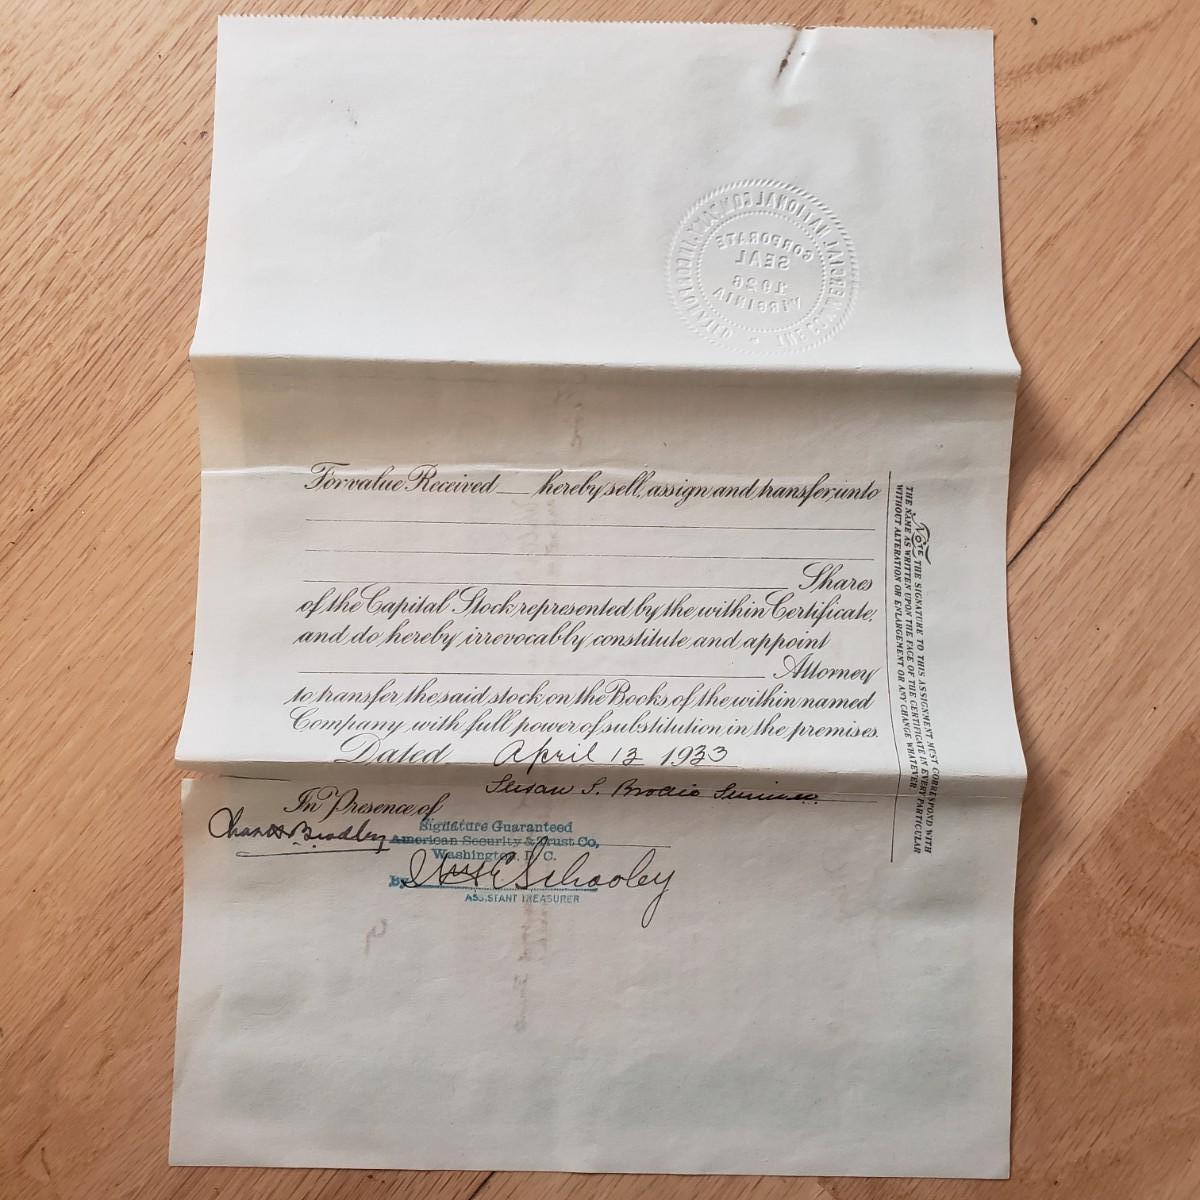 THE COMMERCIAL NATIONAL COMPANY, INCORPORATED
CORPORATE
SEAL
1926
VIRGINIA
For value Received ___ hereby sell, assign and transfer unto
Shares
of the Capital Stock represented by the within Certificate,
and do hereby irrevocably constitute and appoint
Attorney
to transfer the said stock on the Books of the within named
Company with full power of substitution in the premises.
Dated April 13 1933
Susan S. Brodie
In Presence of
Bradley
Signature Guaranteed
American Security & Trust Co,
Washington, D. C.
By Schooley
ASSISTANT TREASURER
NOTE THE SIGNATURE TO THIS ASSIGNMENT MUST CORRESPOND WITH
THE NAME AS WRITTEN UPON THE FACE OF THE CERTIFICATE IN EVERY PARTICULAR
WITHOUT ALTERATION OR ENLARGEMENT OR ANY CHANGE WHATEVER